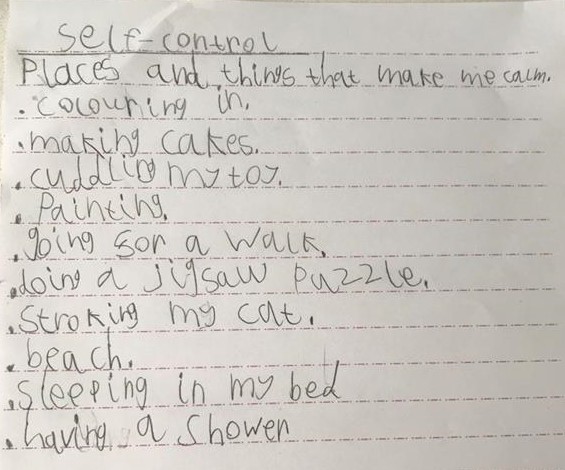 Self-control
Places and things that make me calm.
. Colouring in.
. making cakes.
. cuddling my toy.
. Painting.
. going for a walk.
. doing a jigsaw puzzle.
. Stroking my cat.
. beach.
. Sleeping in my bed
. having a shower